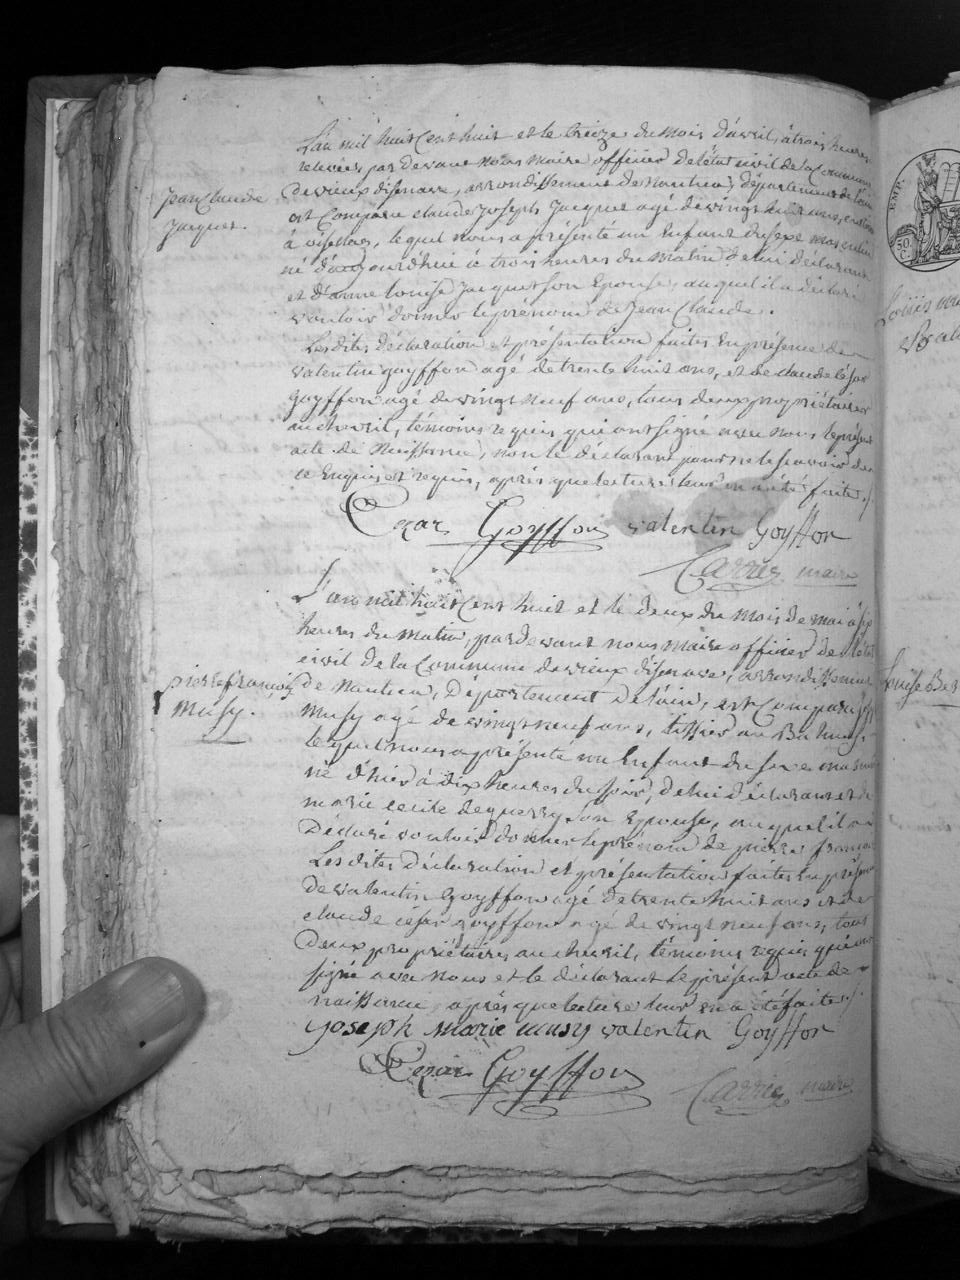 Jean Claude
Jacquet.
L'an mil huit Cent huit et le treize du mois d'avril, à trois heures
relevées, par devant nous maire officier de l'état civil de la Commune
de vieux d'isenave, arrondissement de Nantua, département de l'ain
est Comparu claude Joseph Jacquet agé de vingt huit ans,
à lequel nous a présenté un Enfant du sexe masculin
né d'aujourdhui à trois heures du matin de lui déclarant
et d'anne louise Jacquet son Epouse, auquel il a déclaré
vouloir donner le prénom de Jean Claude.
Les dites déclaration et présentation faites En présence de
valentin goyffon agé de trente huit ans, et de claude César
goyffon agé de vingt neuf ans, tous deux propriétaires
au chevril, témoins requis, qui ont signé avec nous le présent
acte de Naissance, non le déclarant pour ne le scavoir de
ce Enquis et requis, après que lecture leur en a été faite ./.
Cezar Goyffon valentin Goyffon
Carrier maire
pierre françois
Musy.
L'an mil huit Cent huit et le deux du mois de mai à six
heures du matin, par devant nous maire officier de l'état
civil de la Commune de vieux d'isenave, arrondissement
de Nantua, Département De l'ain, est Comparu
Musy agé de vingt neuf ans, tissier au
lequel nous a présenté un Enfant du sexe masculin
né d'hier à dix heures du soir, de lui déclarant et de
marie cecile deguerry son Epouse, auquel il a
Déclaré vouloir donner le prénom de pierre françois
Les dites déclaration et présentation faites En présence
de valentin Goyffon agé de trente huit ans et de
claude césar goyffon agé de vingt neuf ans, tous
deux propriétaires au chevril, témoins requis qui ont
signé avec nous et le déclarant le présent acte de
naissance, après que lecture leur en a été faite ./.
Joseph Marie musy valentin Goyffon
Cezar Goyffon
Carrier maire
EMP.
50.
C.